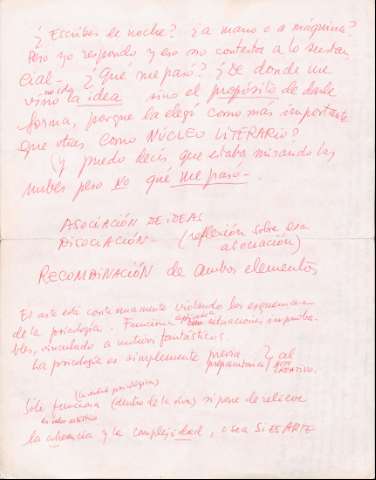 ¿Escribes de noche? ¿a mano o a máquina?
Pero yo respondo y eso no contesta a lo sustan
cial- ¿Qué me pasó? ¿De donde me
vino no sólo la idea sino el propósito de darle
forma, porque la elegí como más importante
que otras como NÚCLEO LITERARIO?
(y puedo decir que estaba mirando las
nubes pero no qué me pasó.
ASOCIACIÓN DE IDEAS
DISOCIACIÓN (reflexión sobre esa
asociación)
RECOMBINACIÓN de ambos elementos
El arte está continuamente violando los esquemas
de la psicología. Funciona situaciones improba-
bles, vinculado a mitos fantásticos.
La psicología es simplemente previa al
CREATIVO.
Sólo funciona (dentro de la obra) si pone de relieve
la ausencia y la complejidad, o sea SI ES ARTE